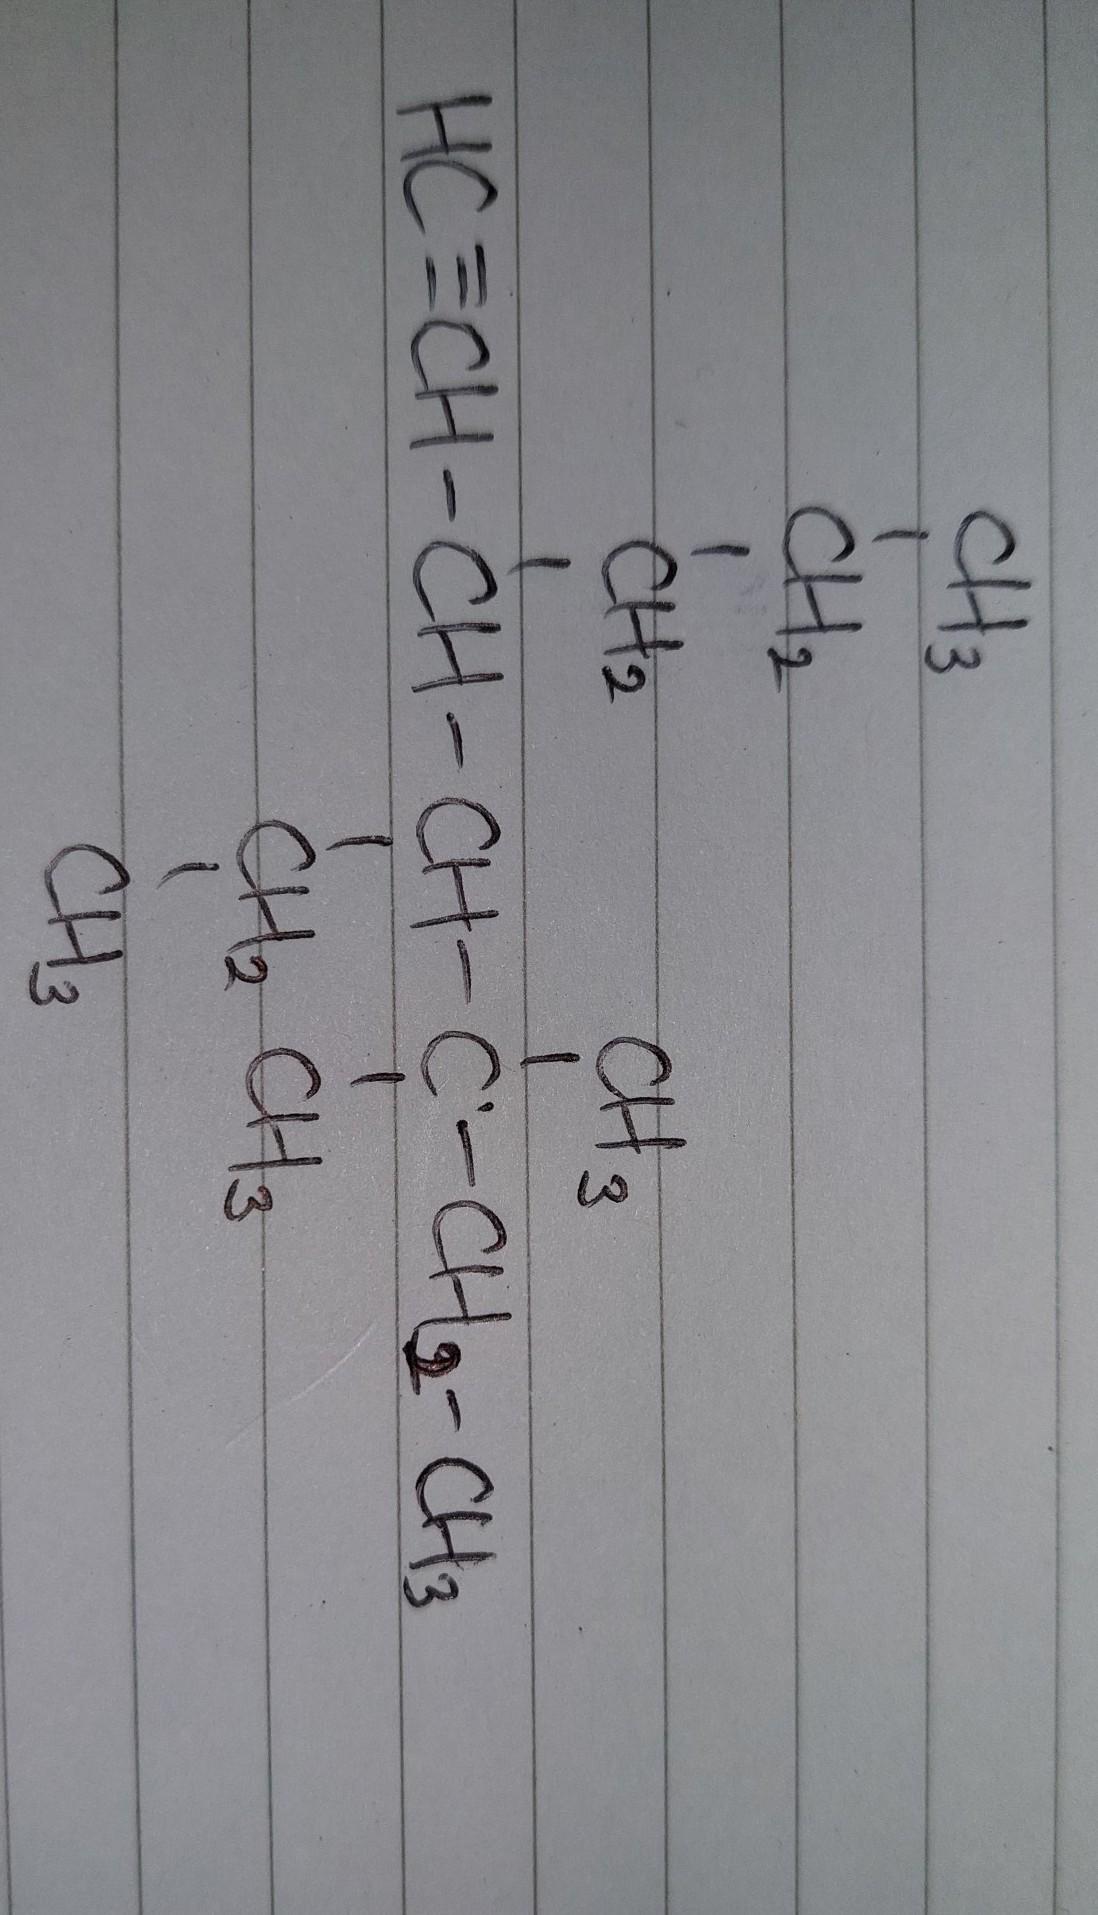 CH3
|
CH2
|
CH2 CH3
| |
HC≡CH-CH-CH-C-CH2-CH3
| |
CH2 CH3
|
CH3